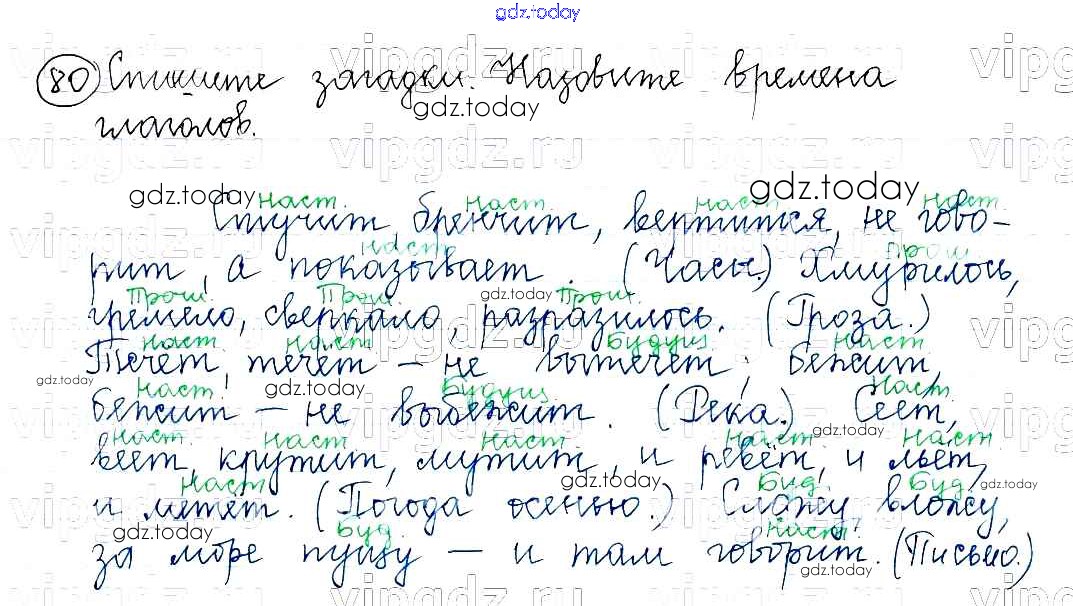 gdz.today
80 Спишите загадки. Назовите времена
глаголов.
наст. наст. наст. наст.
Стучит, бренчит, вертится, не гово-
наст. прош
рит, а показывает. (Часы.) Хмурилось,
Прош. Прош. Прош.
гремело, сверкало, разразилось. (Гроза.)
наст. наст. Будущ наст.
Течёт, течёт – не вытечет; бежит,
наст. Будущ Наст.
бежит – не выбежит. (Река.) Сеет,
наст. наст. наст. наст. наст.
веет, крутит, мутит, и ревёт, и льёт,
наст. Буд. Буд.
и метёт. (Погода осенью.) Сложу, вложу,
Буд. наст.
за море пущу – и там говорит. (Письмо.)